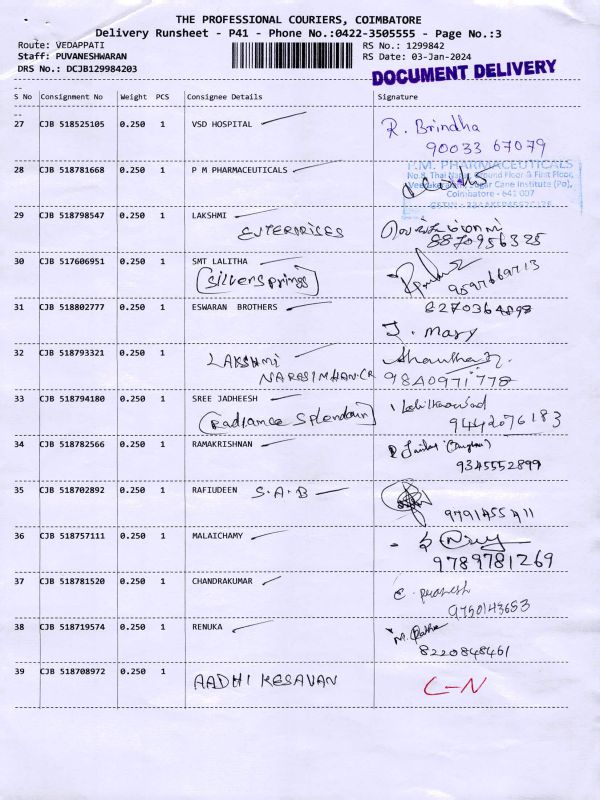 THE PROFESSIONAL COURIERS, COIMBATORE
Delivery Runsheet - P41 - Phone No.:0422-3505555 - Page No.:3
Route: VEDAPPATI RS No.: 1299842
Staff: PUVANESHWARAN RS Date: 03-Jan-2024
DRS No.: DCJB129984203
DOCUMENT DELIVERY
S No Consignment No Weight PCS Consignee Details Signature
27 CJB 518525105 0.250 1 VSD HOSPITAL R. Brindha
90033 67079
28 CJB 518781668 0.250 1 P M PHARMACEUTICALS
P.M. PHARMACEUTICALS
Ground Floor & First Floor,
Sugar Cane Institute (Po),
Coimbatore - 641 007
29 CJB 518798547 0.250 1 LAKSHMI
ENTERPRISES 8870956325
30 CJB 517606951 0.250 1 SMT LALITHA
(Silver springs) 9597669713
31 CJB 518802777 0.250 1 ESWARAN BROTHERS 8270364898
J. Mary
32 CJB 518793321 0.250 1 LAKSHMI
NARASIMHAN.CR 9840971778
33 CJB 518794180 0.250 1 SREE JADHEESH
(Radiance Splendour) 9442076183
34 CJB 518782566 0.250 1 RAMAKRISHNAN
9345552899
35 CJB 518702892 0.250 1 RAFIUDEEN S.A.B
9791455411
36 CJB 518757111 0.250 1 MALAICHAMY
9789781269
37 CJB 518781520 0.250 1 CHANDRAKUMAR
9750143653
38 CJB 518719574 0.250 1 RENUKA
8220848461
39 CJB 518708972 0.250 1 AADHI KESAVAN C-N